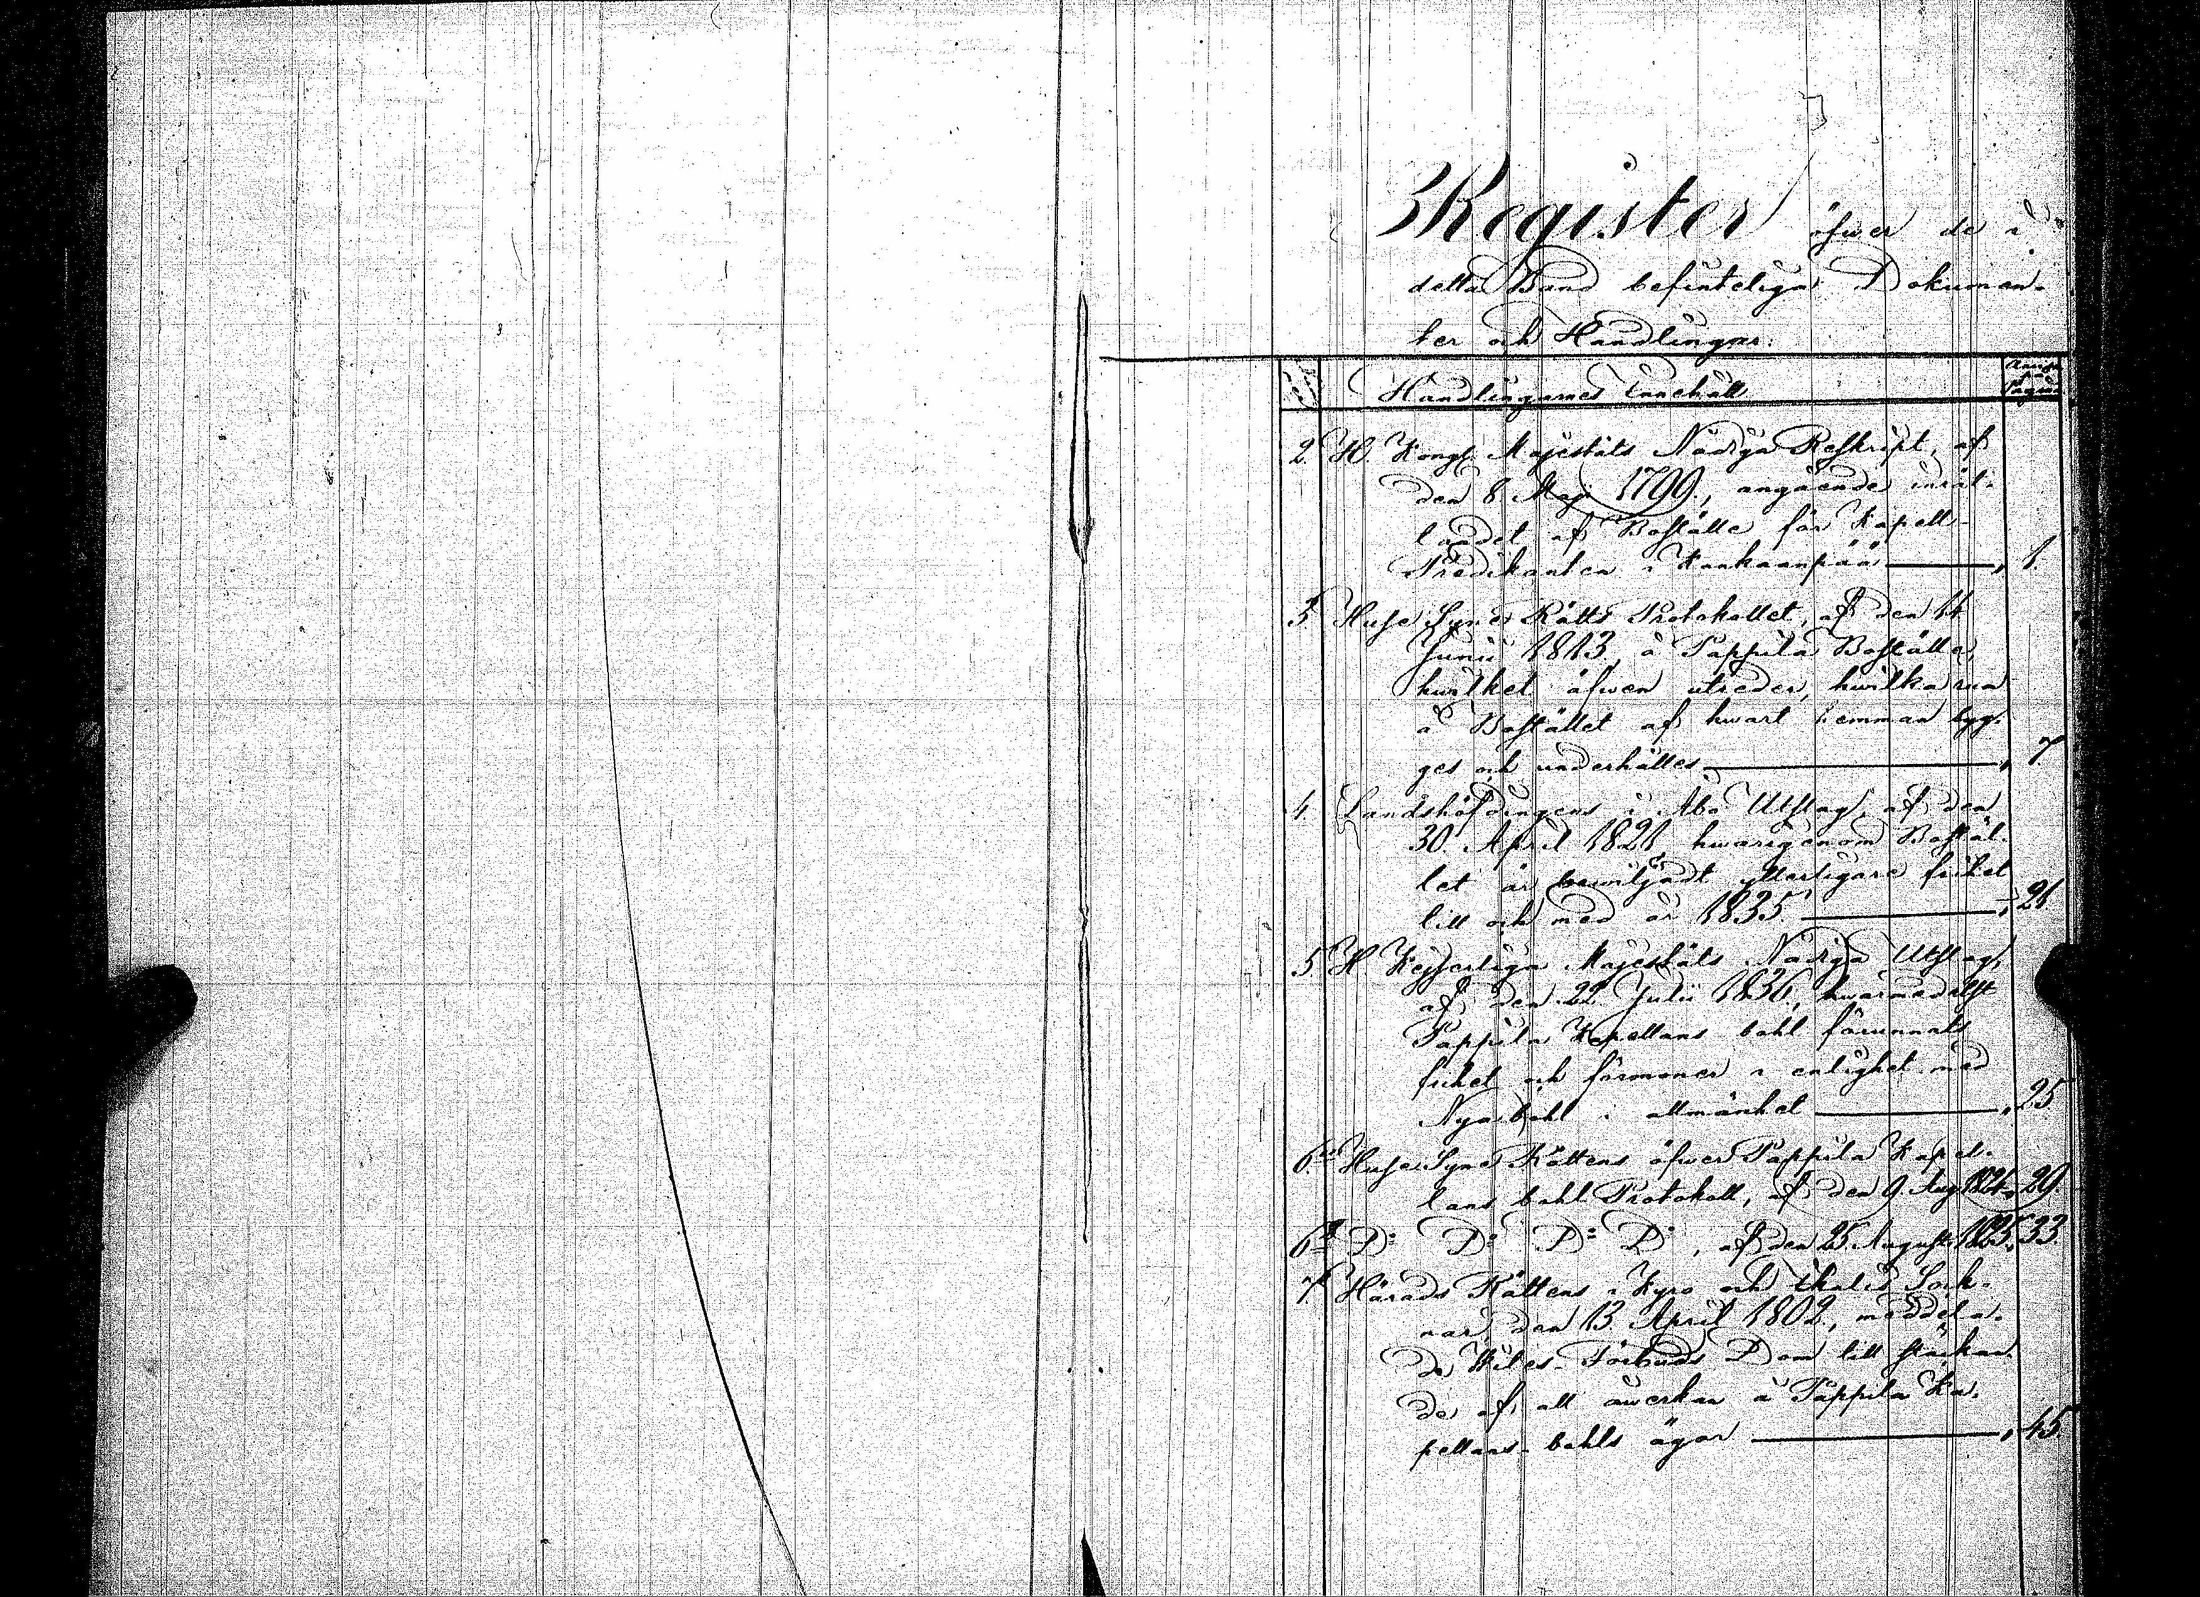 Register öfwer de i
detta Band befinteliga Dokumen-
ter och Handlingar.
Handlingarnes Innehåll
2. H. Kongl. Majestäts Nådiga Reskript, af
den 8 Maji 1799, angående inrät-
tandet af Boställe för Kapell-
Predikanten i Kankaanpää 1.
3. Huse Syns Rätts Protokollet, af den 11
Junii 1813, å Päppilä Boställe,
hwilket äfwen utreder, hwilka rum
å Bostället af hwart hemman byg-
ges och underhålles 7
4. Landshöfdingens i Åbo Utslag, af den
30 April 1821, hwarigenom Bostäl-
let är bewiljadt ytterligare frihet
till och med år 1835 21.
5 H Kejserliga Majestäts Nådiga Utslag,
af den 22 Julii 1836, hwarmedelst
Pappila Kapellans bohl förunnats
frihet och förmoner i enlighet med
Nya bohl i allmänhet 25
6 Huse Syns Rättens öfwer Pappila Kapel-
lans bohl Protokoll, af den 9 Aug 29.
6 D:o D:o D:o D:o, af den 25 Augusti 33
7. Härads Rättens i Kyro och Ikalis Sock-
nar, den 13 April 1802, meddela-
de Wites-Förbuds Dom till
de af all åwerkan å Pappila Ka-
pellans-bohls ägor 45.